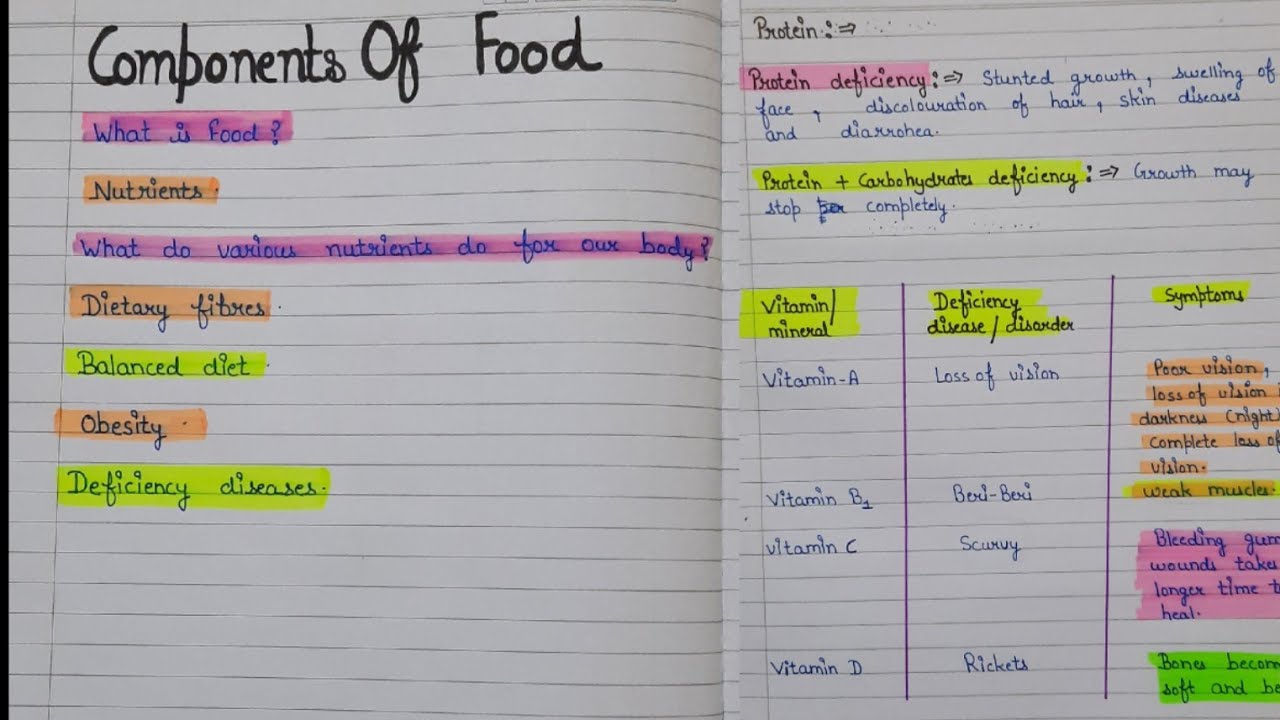 Components Of Food
What is food?
Nutrients.
What do various nutrients do for our body?
Dietary fibres.
Balanced diet.
Obesity.
Deficiency diseases.
Protein :⇒
Protein deficiency :⇒ Stunted growth, swelling of
face, discolouration of hair, skin diseases
and diarrohea.
Protein + Carbohydrates deficiency :⇒ Growth may
stop completely.
Vitamin/
mineral
Deficiency
disease / disorder
Symptoms
Vitamin-A
Loss of vision
Poor vision,
loss of vision
darkness (night)
complete loss of
vision.
Vitamin B1
Beri-Beri
weak muscles.
vitamin C
Scurvy
Bleeding gum
wounds takes
longer time t
heal.
Vitamin D
Rickets
Bones becom
soft and be